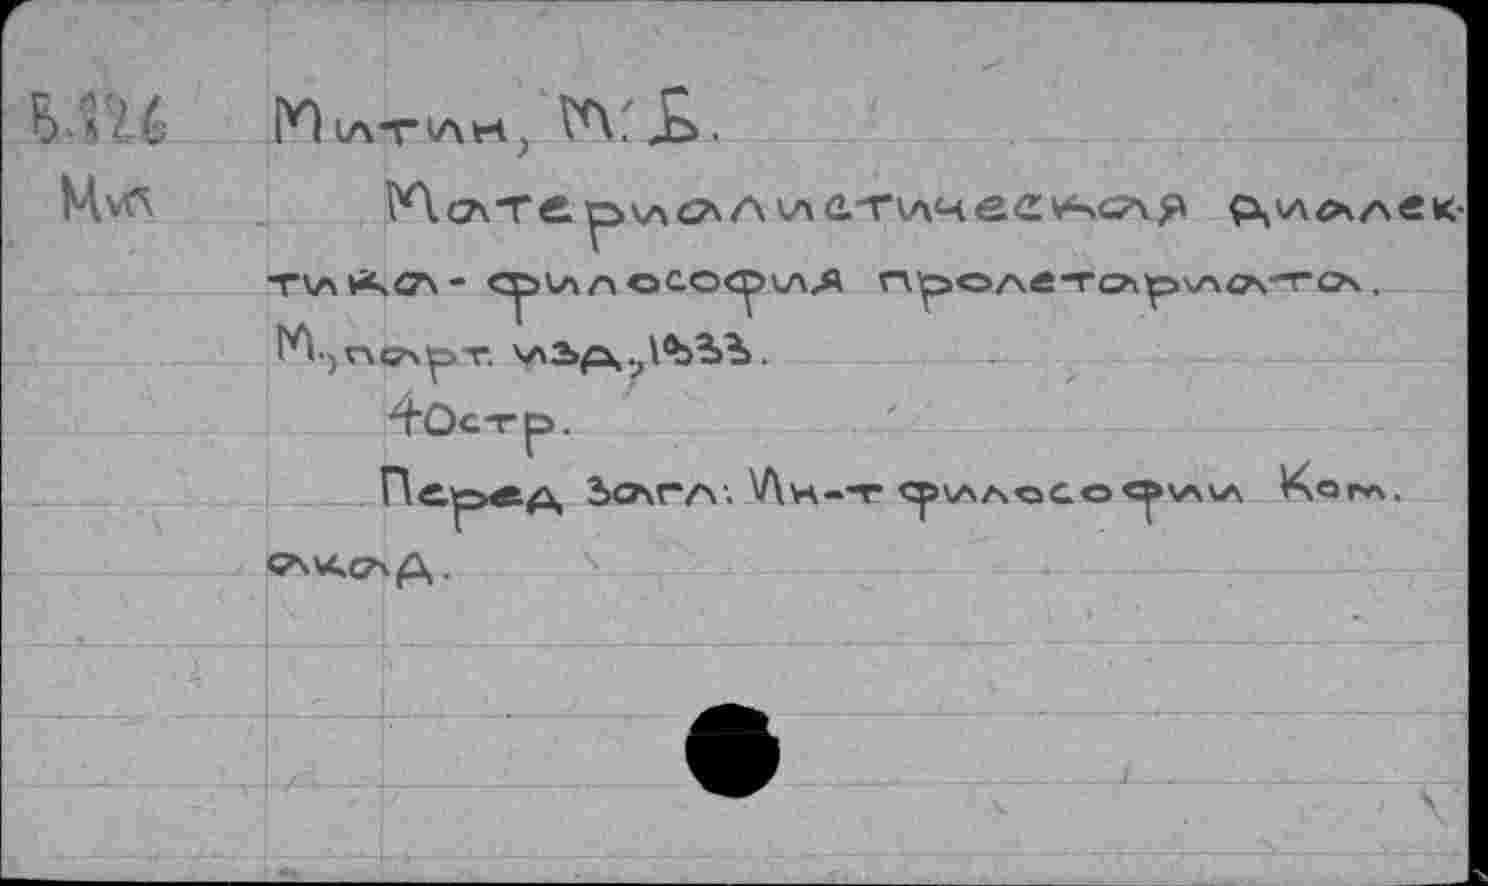 Митин, М. Б.
Материалистическая диалек-
тика - философия пролетариата.
М., парт. изд., 1933.
40стр.
Перед загл.: Ин-т философии Ком.
акад.